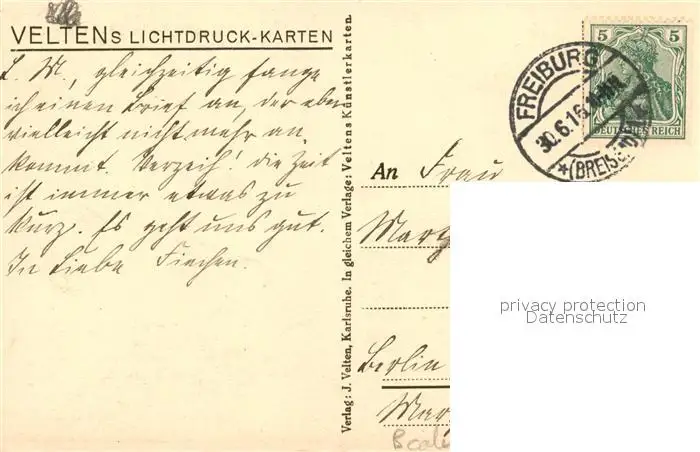 VELTENs LICHTDRUCK-KARTEN
L. M., gleichzeitig fange
ich einen Brief an, der aber
vielleicht nicht mehr an
kommt. Verzeih! die Zeit
ist immer etwas zu
kurz. Es geht uns gut.
In Liebe
Verlag: J. Velten, Karlsruhe. In gleichem Verlage: Veltens Künstlerkarten.
FREIBURG
30.6.16
(BREISG
5 5
DEUTSCHES REICH
An Frau
Berlin
privacy protection
Datenschutz